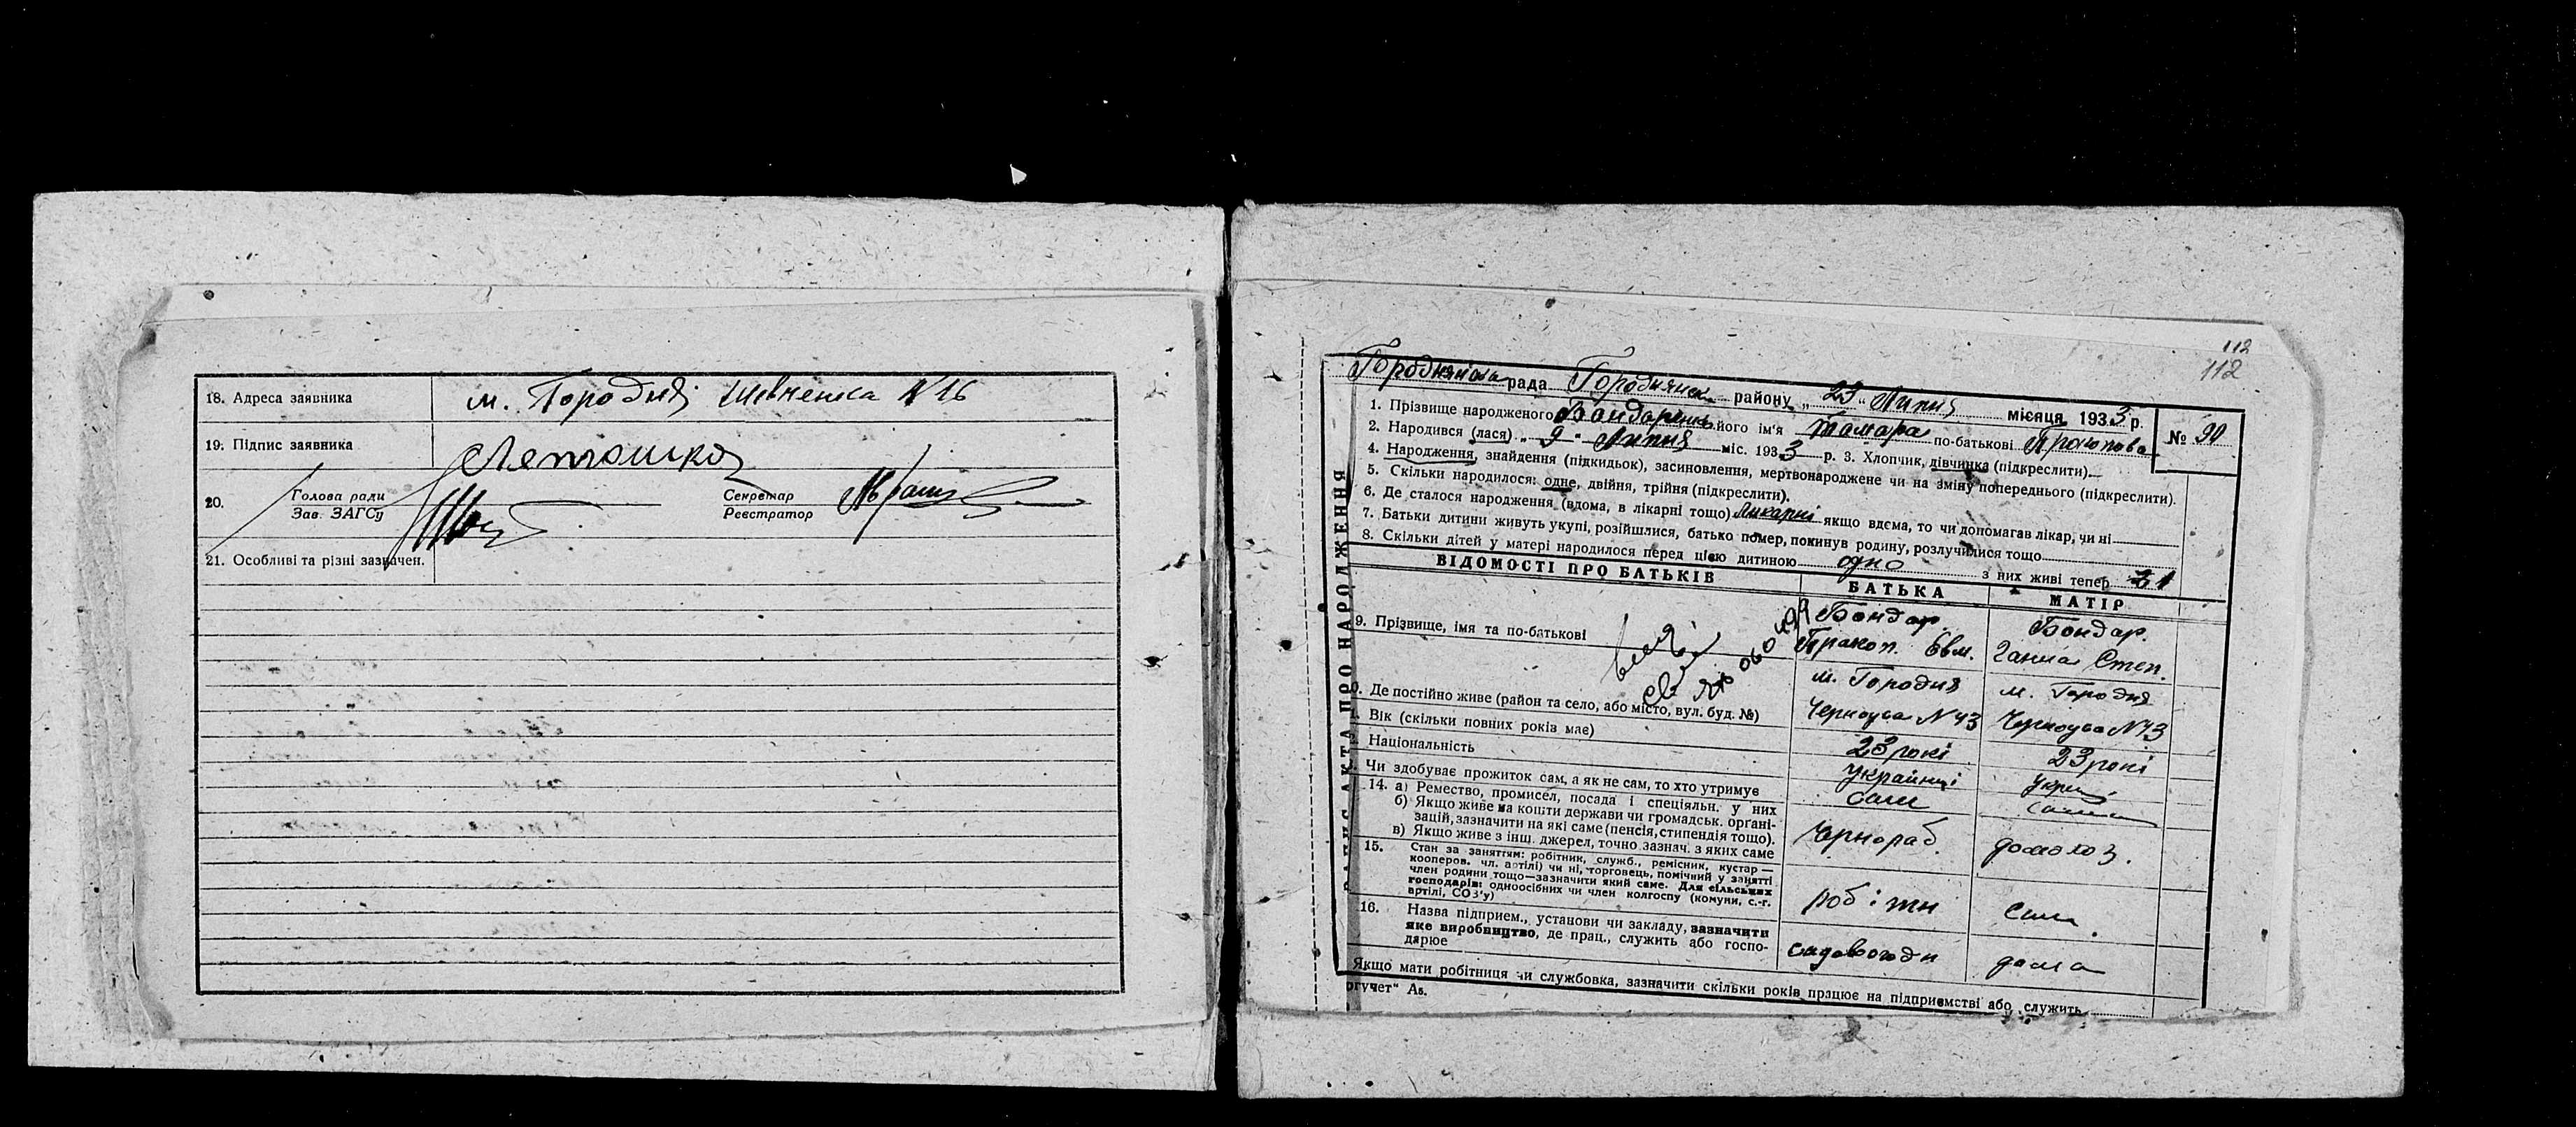 18. Адреса заявника м. Городня Шевченка N 16
19. Підпис заявника
20. Голова ради
Зав. ЗАГСу
Секретар
Реєстратор
21. Особливі та різні зазначен.
112
112
Городнянська рада Городнянськ. району „ 23 " Липня місяця 1933 р.
№ 90
1. Прізвище народженого Бондаренко його ім'я Тамара по-батькові
2. Народився (лася) „ 9 " Липня міс. 1933 р. 3. Хлопчик, дівчинка (підкреслити).
4. Народження, знайдення (підкидьок), засиновлення, мертвонароджене чи на зміну попереднього (підкреслити).
5. Скільки народилося: одне, двійня, трійня (підкреслити).
6. Де сталося народження (вдома, в лікарні тощо) Ликарні якщо вдєма, то чи допомагав лікар, чи ні
7. Батьки дитини живуть укупі, розійшлися, батько помер, покинув родину, розлучилися тощо
8. Скільки дітей у матері народилося перед цією дитиною одно з них живі тепер 1
ЗАПИС АКТА ПРО НАРОДЖЕННЯ
ВІДОМОСТІ ПРО БАТЬКІВ БАТЬКА МАТІР
9. Прізвище, імя та по-батькові
Бондар. Бондар.
Пракоп. Евм. Ганна Степ.
. Де постійно живе (район та село, або місто, вул. буд. №)
м. Городня м. Городня
Черноуса N 43 Черноуса N 43
. Вік (скільки повних років має) 23 рокі 23 рокі
Національність украйниці укр
. Чи здобуває прожиток сам, а як не сам, то хто утримує сам сама
14. а) Ремество, промисел, посада і спеціяльн. у них
б) Якщо живе на кошти держави чи громадськ. органі-
зацій, зазначити на які саме (пенсія, стипендія тощо).
в) Якщо живе з інш. джерел, точно зазнач. з яких саме
Чернораб. домохоз.
15. Стан за заняттям: робітник, служб., ремісник, кустар —
кооперов. чл. артілі) чи ні, торговець, помічний у занятті
член родини тощо—зазначити який саме. Для сільських
господарів: одноосібних чи член колгоспу (комуни, с.-г.
артілі, СОЗ'у)
робітн сама
16. Назва підприєм., установи чи закладу, зазначити
яке виробництво, де прац., служить або госпо-
дарює
дома
Якщо мати робітниця чи службовка, зазначити скільки років працює на підприємстві або служить
ргучет" А₅.